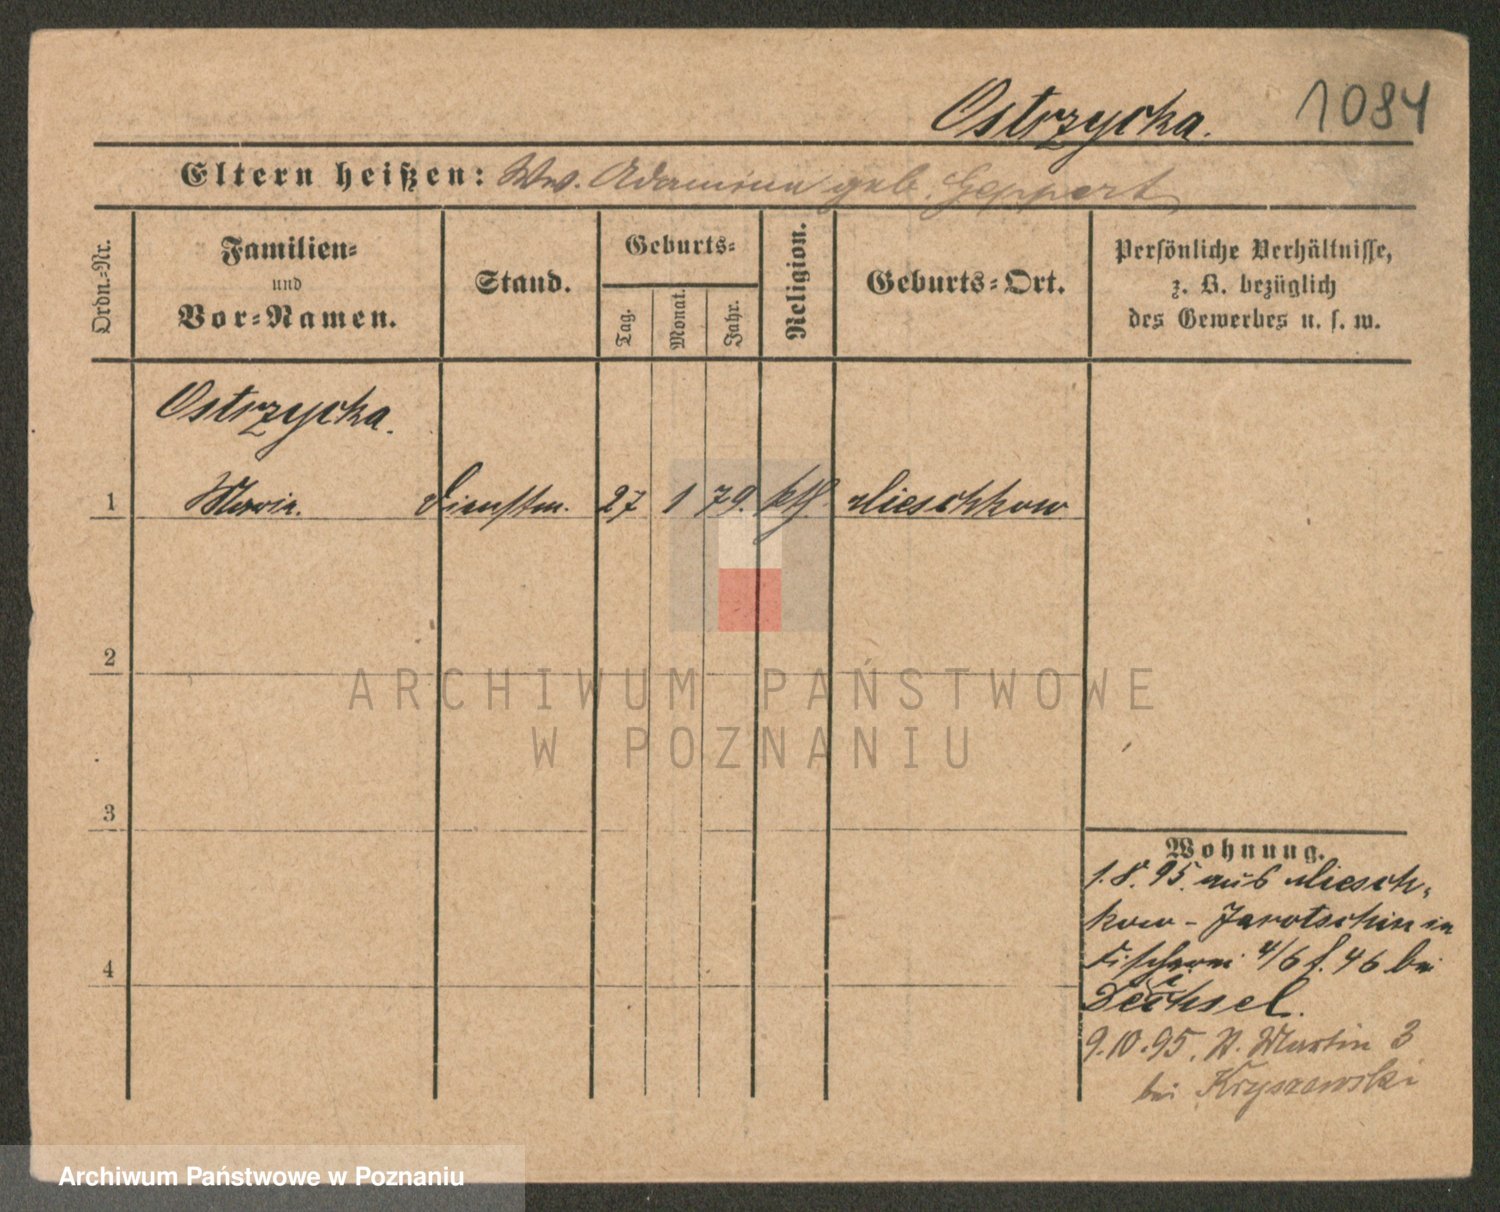 Ostrzycka.
1084
Eltern heißen: Ww. Adamina geb. Geppert
Ordn.-Nr.
Familien-
und
Vor-Namen.
Stand.
Geburts-
Tag.
Monat.
Jahr.
Religion.
Geburts-Ort.
Persönliche Verhältnisse,
z. B. bezüglich
des Gewerbes u. s. w.
Ostrzycka.
1 Maria. Dienstm. 27 1 79. kth. Mieschkow
2
3
4
Wohnung.
1.8.95. aus Miesch-
kow - Jarotschin in
Fischerei 4/6 f. 46 bei
Dechsel.
9.10.95. St. Martin 3
bei Kryszewski
ARCHIWUM PAŃSTWOWE
W POZNANIU
Archiwum Państwowe w Poznaniu